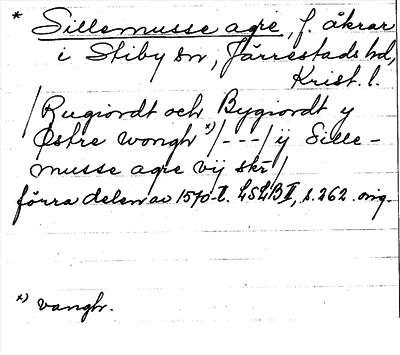 * Sillemusse agre, f. åkrar
i Stiby sn, Järrestads hd,
Krist. l.
/Rugiordt och Bygiordt y
Østre wongh *)/---/ij Sille-
musse agre vij skr/
förra delen av 1570-t. LSLB II, s. 262. orig.
*) vangh.